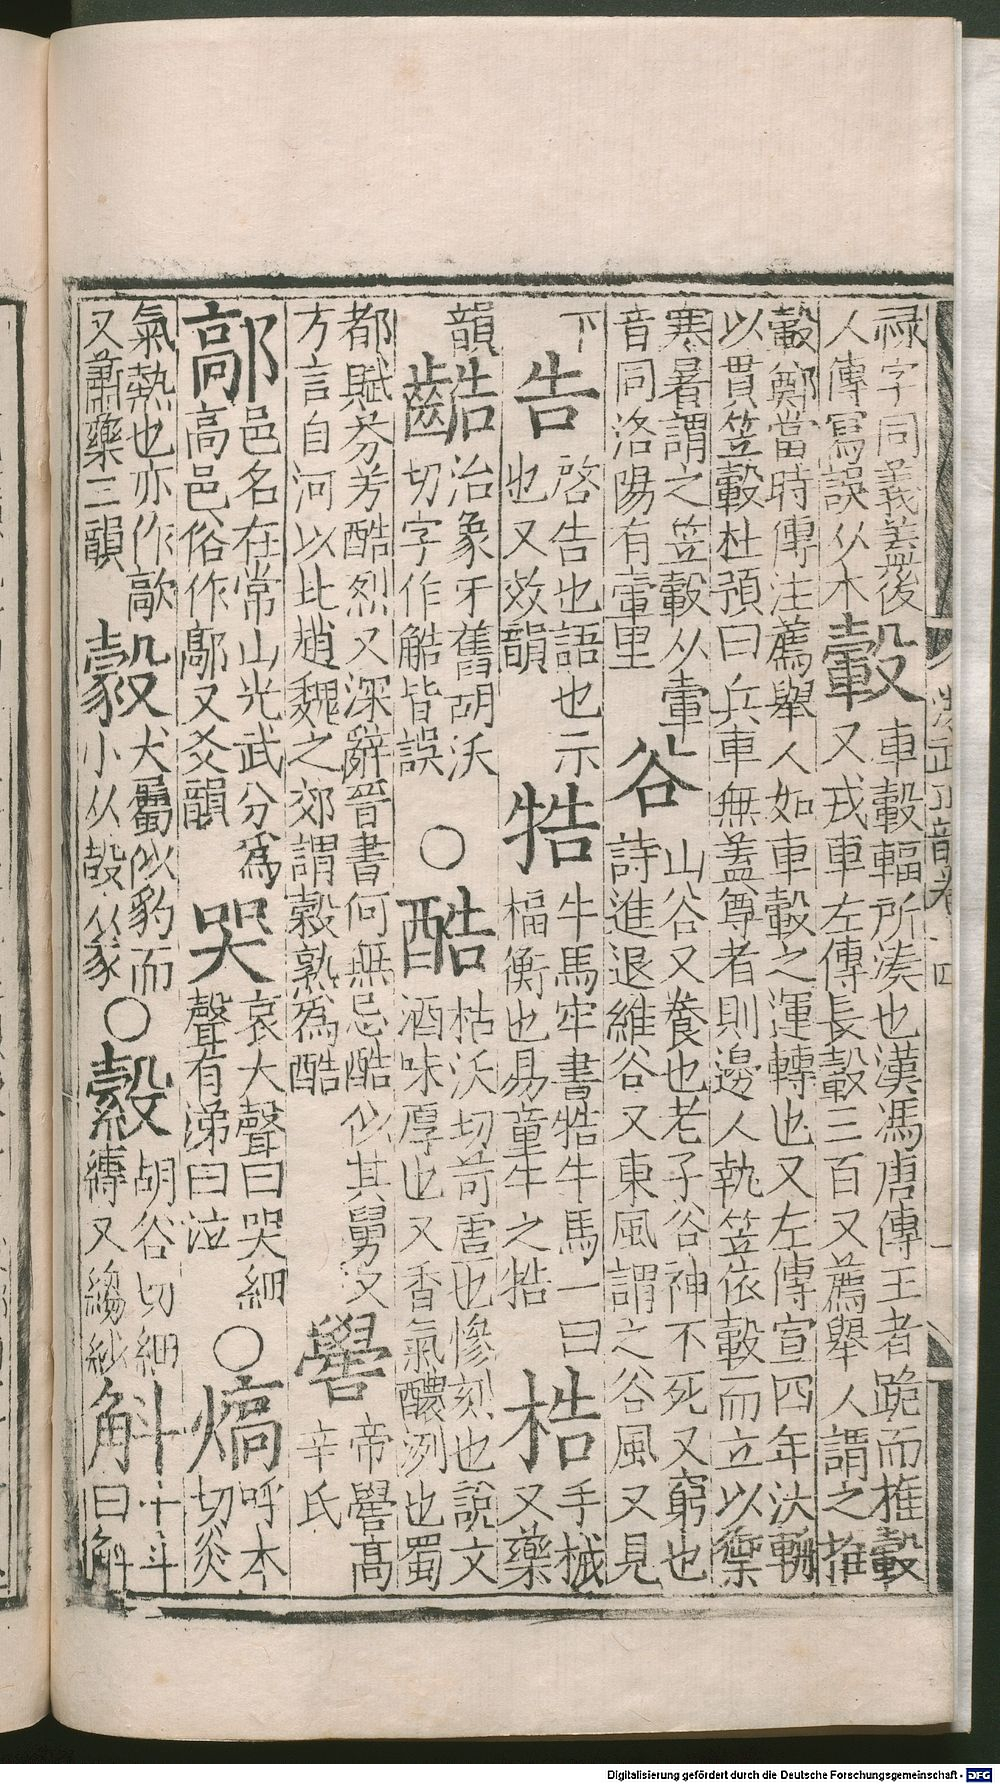 洪武正韻卷十四
祿字同義蓋後
人傳寫誤从木
轂
車轂輻所湊也漢馮唐傳王者跪而推轂
又戎車左傳長轂三百又薦舉人謂之推
轂鄭當時傳注薦舉人如車轂之運轉也又左傳宣四年汏輈
以貫笠轂杜預曰兵車無蓋尊者則邊人執笠依轂而立以禦
寒暑謂之笠轂从𨍇
音同洛陽有𨍇里
谷
山谷又養也老子谷神不死又窮也
詩進退維谷又東風謂之谷風又見
下
告
啓告也語也示
也又效韻
牿
牛馬牢書牿牛馬一曰
楅衡也易童牛之牿
梏
手械
又藥
韻
䶜
治象牙舊胡沃
切字作䚛皆誤
○
酷
枯沃切苛虐也慘刻也說文
酒味厚也又香氣醲洌也蜀
都賦芬芳酷烈又深辭晉書何無忌酷似其舅又
方言自河以比趙魏之郊謂穀熟為酷
嚳
帝嚳高
辛氏
鄗
邑名在常山光武分為
高邑俗作鄗又爻韻
哭
哀大聲曰哭細
聲有涕曰泣
○
熇
呼木
切炎
氣熱也亦作歊
又蕭藥三韻
㺉
犬屬似豹而
小从㱿从豕
○
縠
胡谷切細
縳又縐紗
斛
十斗
曰斛
Digitalisierung gefördert durch die Deutsche Forschungsgemeinschaft - DFG